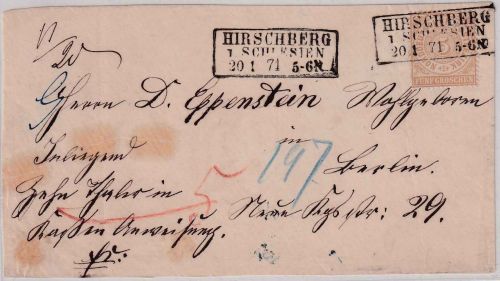 HIRSCHBERG
I. SCHLESIEN
20 1 71 5-6N
HIRSCHBERG
I. SCHLESIEN
20 1 71 5-6N
5
FÜNF GROSCHEN
Herrn D. Eppenstein Wohlgeboren
in
Berlin.
Inliegend
Zehn Thaler in
Kassen Anweisung.
fr.
Neue Kgs str: 29.
197
5